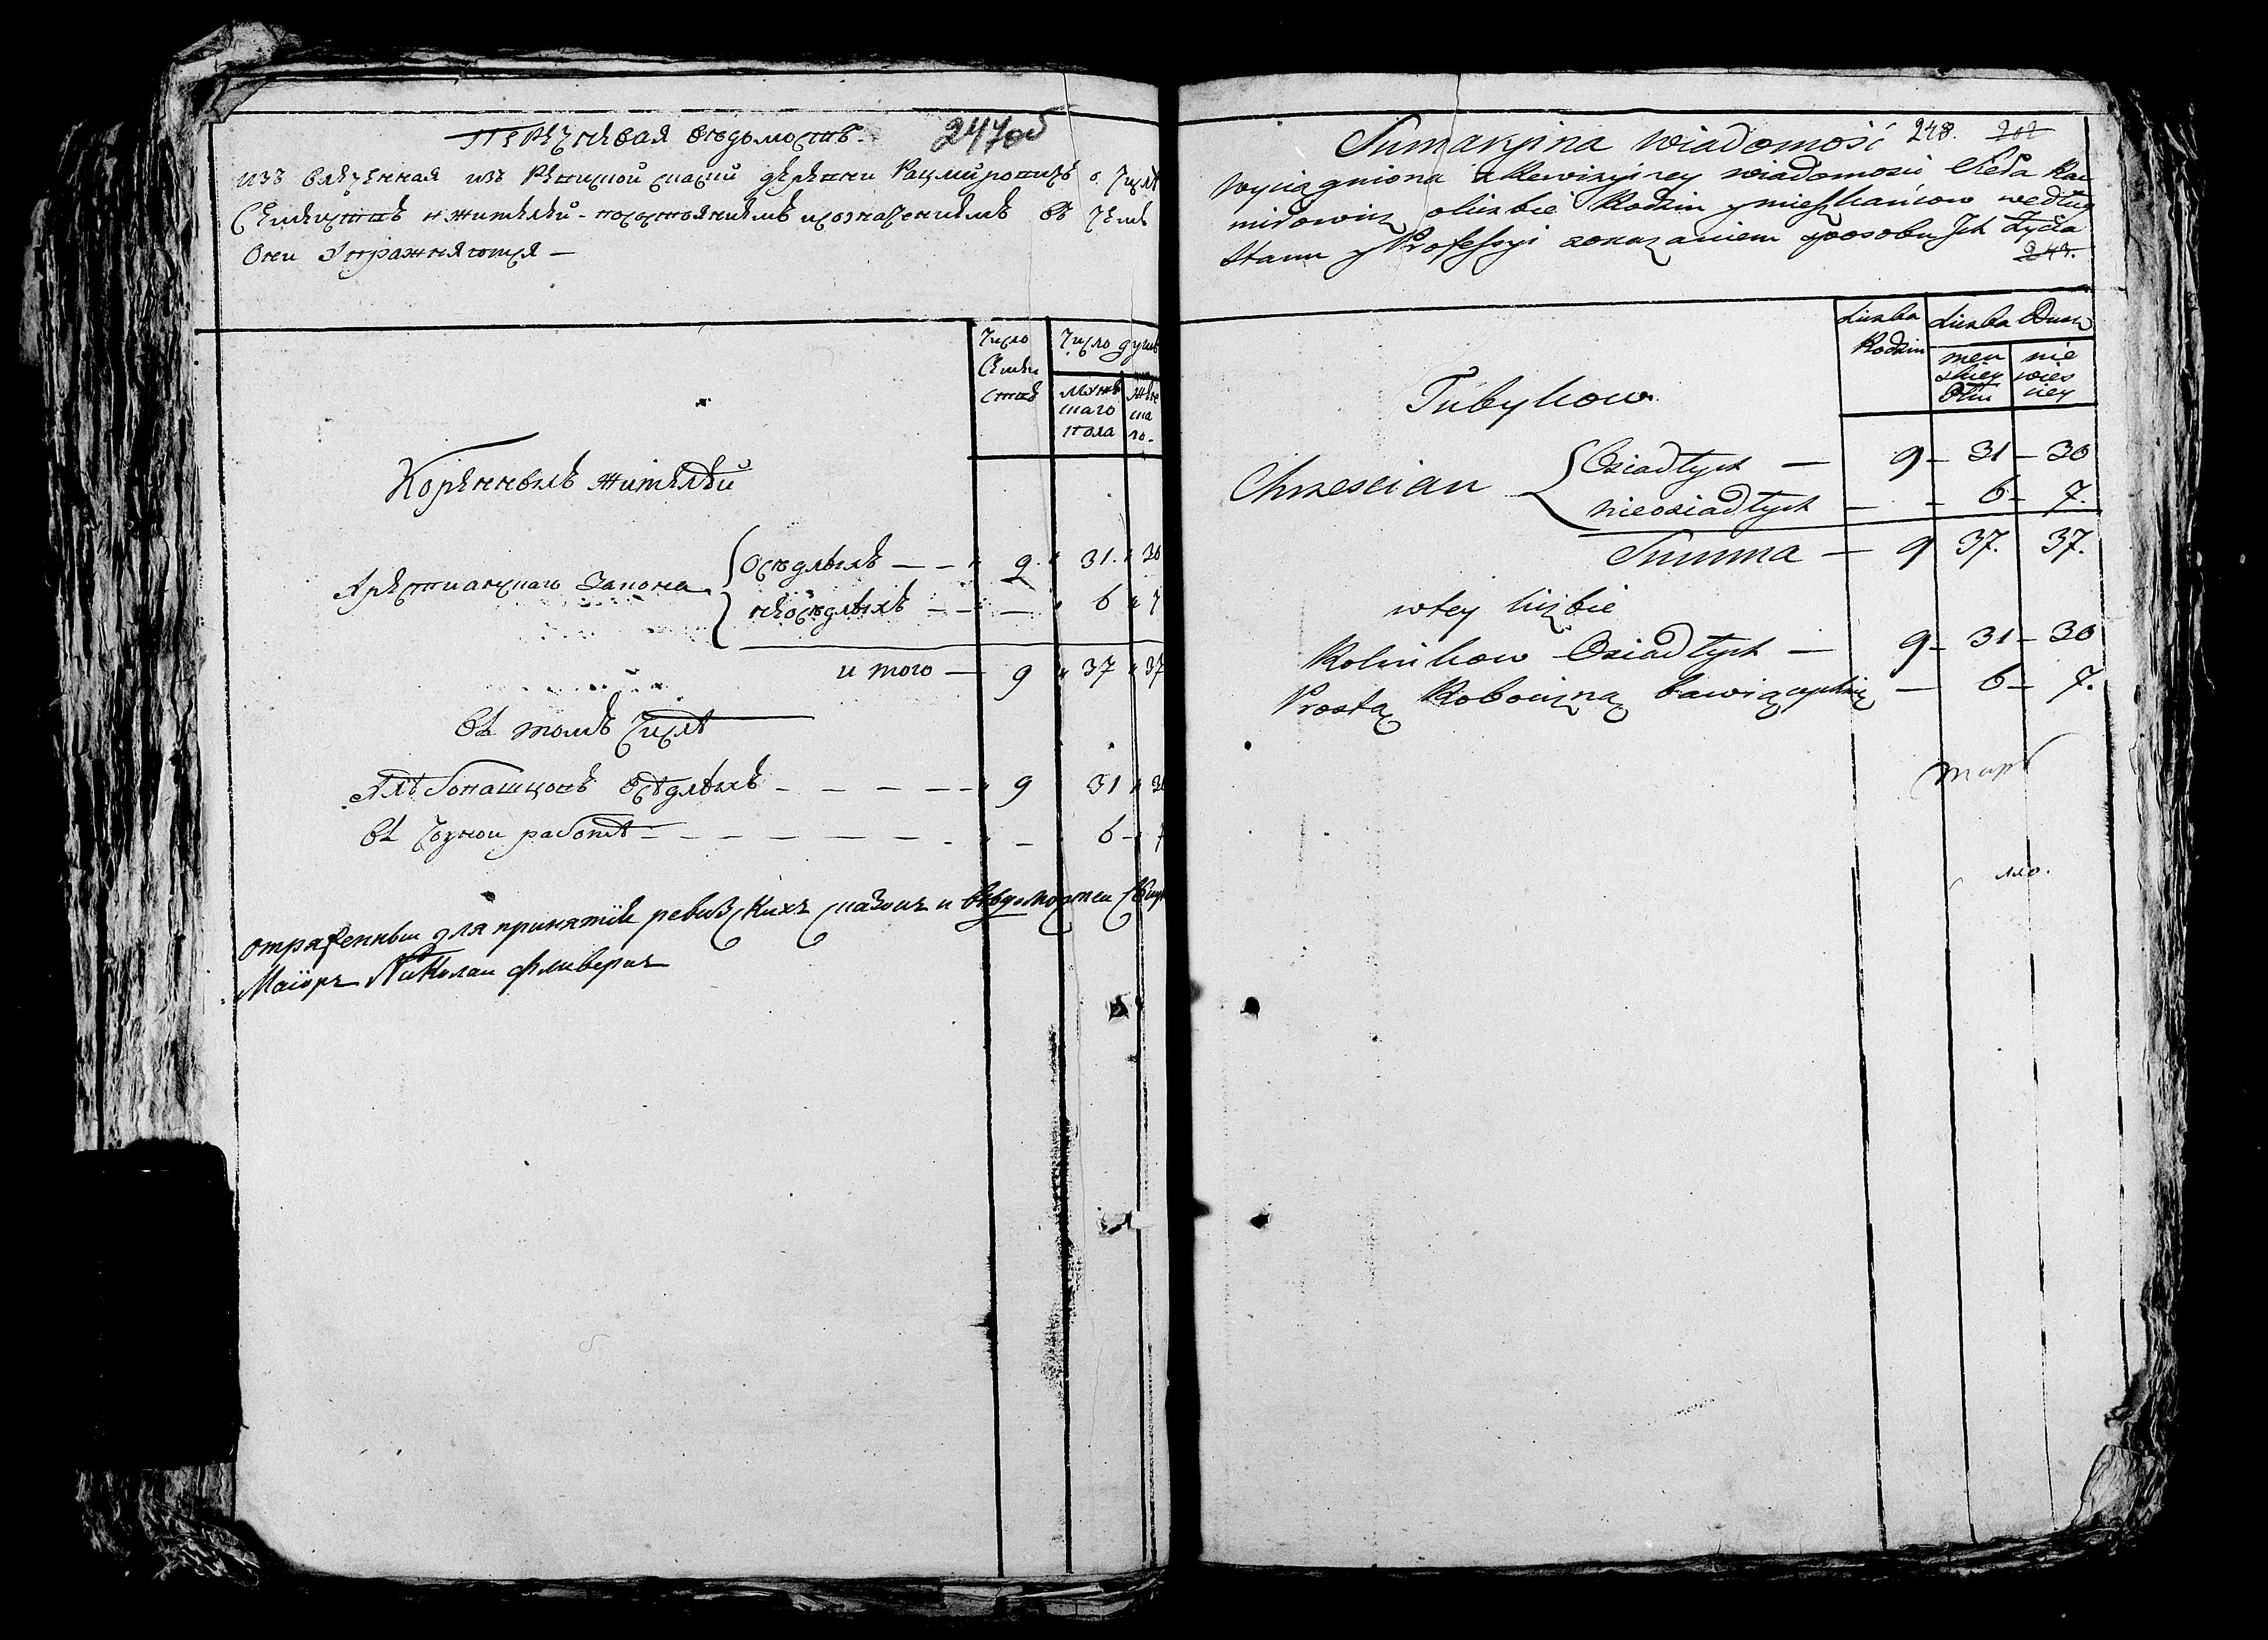 Перечневая ведомость. 247об
изъ влеченная изъ Ревиской скаски деревни Рацмировичъ о Числе
Семействъ и жителей по состояниямъ и созначениемъ въ чемъ
Они Упражняютца —
Число Семействъ
Число душъ
мужскаго пола
женскаго.
Коренныхъ жителей
Хрестианскаго Закона
Оседлыхъ — — 9. 31. 30
неоседлыхъ — — — 6 7
и того — 9 37 37
въ томъ Числѣ
Хлѣбопашцовъ осѣдлыхъ — — — — 9 31 30
въ Чорной работѣ — — — — — 6 7
отряженныи для принятїя ревизскихъ сказокъ и вѣдомостеи
Маїоръ Николаи
Sumaryjna wiadomość 248. 202
wyciągniona z Rewizyiney wiadomości Sieła Rac
mirowicz o liczbie Rodzin y mieszkańcow według
stanu y Professyi z okazaniem sposobu Ich Życia
243.
Liczba Rodzin
Liczba Dusz
męzkiey Płci
niewiesciey
Tubylcow
Chrzescian
Osiadłych — 9 — 31 — 30
nieosiadłych — — 6 — 7.
Summa — 9 37. 37.
w tey liczbie
Rolnikow Osiadłych — 9 — 31 — 30
Prostą Robocizną bawiących się — 6 — 7.